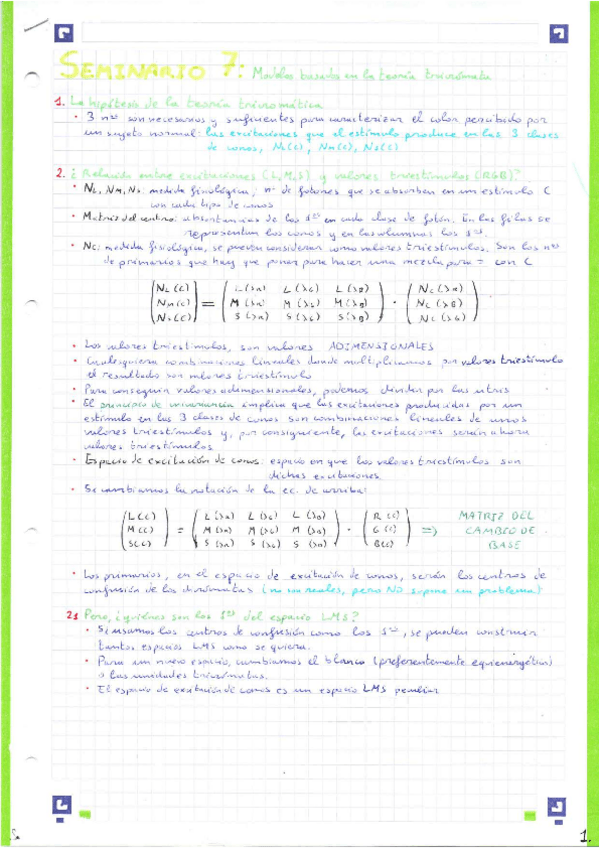 SEMINARIO 7: Modelos basados en la teoría tricrómata
1. La hipótesis de la teoría tricromática
• 3 nos son necesarios y suficientes para caracterizar el color percibido por
un sujeto normal: las excitaciones que el estímulo produce en las 3 clases
de conos, NL(C), NM(C), NS(C)
2. ¿Relación entre excitaciones (L,M,S) y valores triestímulos (RGB)?
• NL, NM, NS: medida fisiológica; nº de fotones que se absorben en un estímulo C
con cada tipo de conos
• Matriz del centro: absortancias de los 1os en cada clase de fotón. En las filas se
representan los conos y en las columnas los 1os.
• NC: medida fisiológica, se pueden considerar como valores triestímulos. Son los nos
de primarios que hay que poner para hacer una mezcla para = con C
(NL(C)) (L(λR) L(λG) L(λB)) (NC(λR))
(NM(C)) = (M(λR) M(λG) M(λB)) · (NC(λB))
(NS(C)) (S(λR) S(λG) S(λB)) (NC(λG))
• Los valores triestímulos, son valores ADIMENSIONALES
• Cualesquiera combinaciones lineales donde multiplicamos por valores triestímulo
el resultado son valores triestímulo
• Para conseguir valores adimensionales, podemos dividir por las
• El principio de univariancia implica que las excitaciones producidas por un
estímulo en las 3 clases de conos son combinaciones lineales de unos
valores triestímulos y, por consiguiente, las excitaciones serán ahora
valores triestímulos
• Espacio de excitación de conos: espacio en que los valores triestímulos son
dichas excitaciones
• Si cambiamos la notación de la ec. de arriba:
(L(C)) (L(λR) L(λG) L(λB)) (R(C)) MATRIZ DEL
(M(C)) = (M(λR) M(λG) M(λB)) · (G(C)) => CAMBIO DE
(S(C)) (S(λR) S(λG) S(λB)) (B(C)) BASE
• Los primarios, en el espacio de excitación de conos, serán los centros de
confusión de los dicrómatas (no son reales, pero NO supone un problema)
21 Pero, ¿quiénes son los 1os del espacio LMS?
• Si usamos los centros de confusión como los 1os, se pueden construir
tantos espacios LMS como se quiera.
• Para un nuevo espacio, cambiamos el blanco (preferentemente equienergético)
o las unidades tricrómatas.
• El espacio de excitación de conos es un espacio LMS peculiar
1.